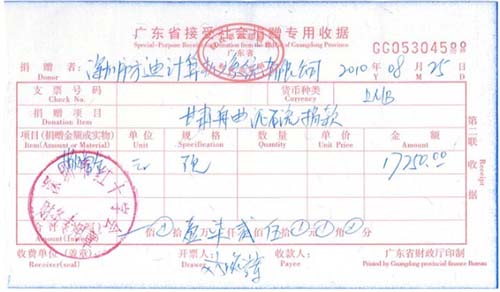 广东省接受社会捐赠专用收据
Special-Purpose Receipt Donation from the of Guangdong Province
广东省
GG05304588
捐赠者: 深圳市方迪计算机 有限公司 2010 年 08 月 25 日
Donor Y M D
支票号码 货币种类 RMB
Check No. Currency
捐赠项目 甘肃舟曲泥石流捐款
Donation Item
项目(捐赠金额或实物) 单位 规格 数量 单价 金额
Item(Amount or Material) Unit Specification Quantity Unit Price Amount
元 现 17250.00
佰 拾 壹 万 柒 仟 贰 佰 伍 拾 元 角 分
Amount
第二联 收据
Receipt
收费单位(盖章): 开票人: 收款人: 广东省财政厅印制
Receiver(seal) Drawer Payee Printed by Guangdong provincial finance Bureau